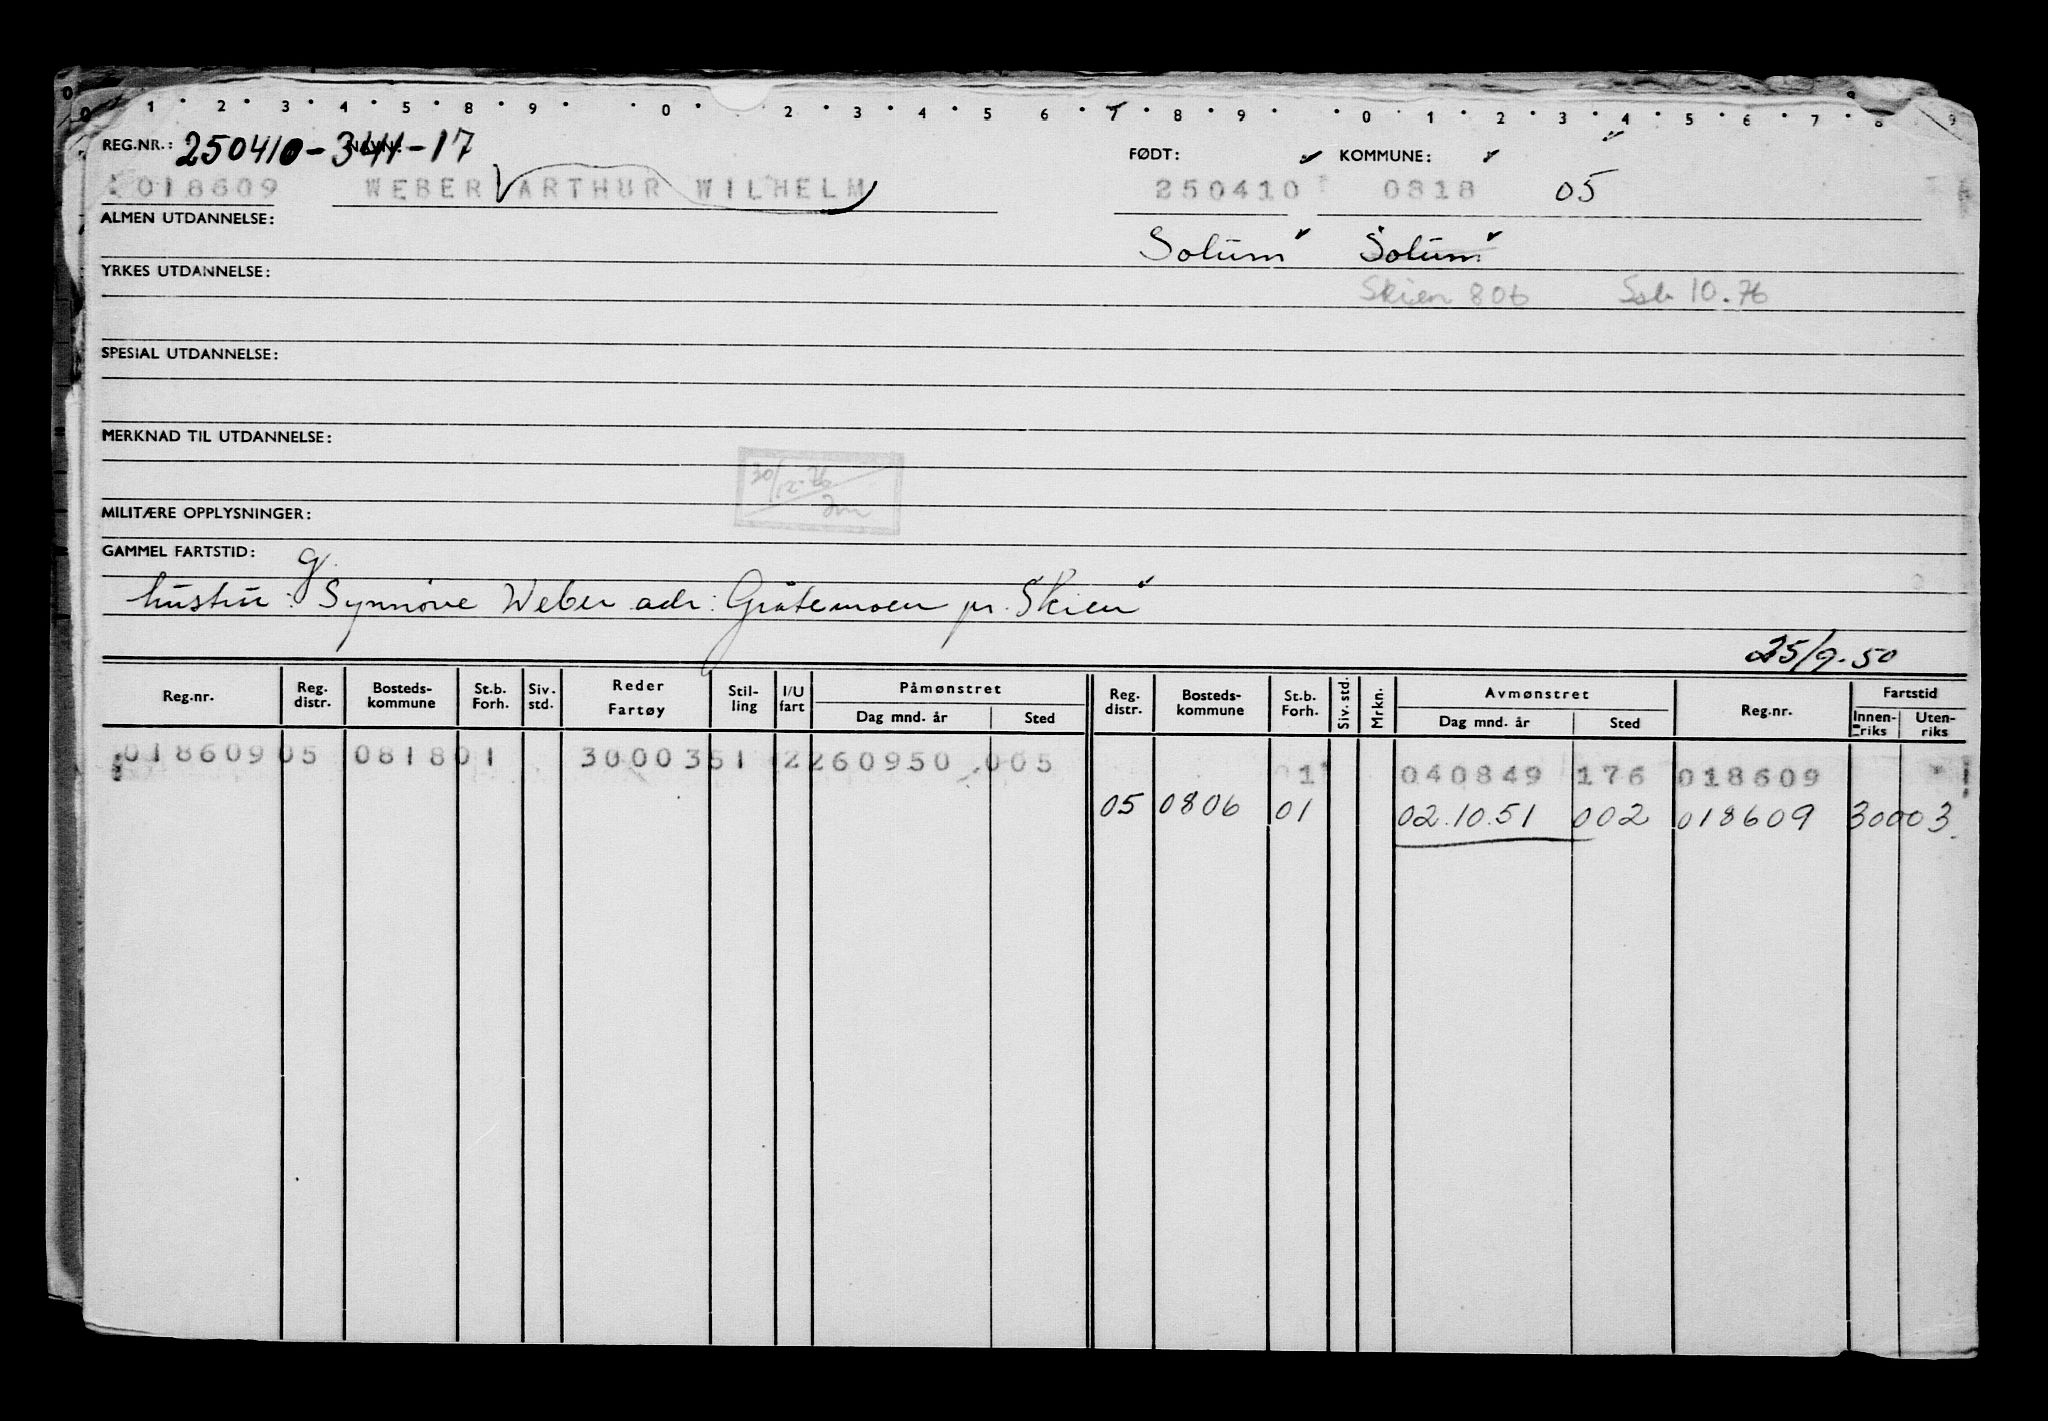 0 1 2 3 4 5 8 9 0 2 3 4 5 6 7 8 9 0 1 2 3 4 5 6 7 8 9
REG.NR.: 250410-34411-17 NAVN: FØDT: KOMMUNE:
018609 WEBER ARTHUR WILHELM 250410 0818 05
ALMEN UTDANNELSE:
Solum Solum
YRKES UTDANNELSE:
Skien 806 Ssb 10.76
SPESIAL UTDANNELSE:
MERKNAD TIL UTDANNELSE:
30/12-76
MILITÆRE OPPLYSNINGER:
GAMMEL FARTSTID:
g.
hustru: Synnøve Weber adr: Gråtenmoen pr. Skien
25/9.50
Reg.nr. Reg. distr. Bosteds-kommune St.b. Forh. Siv. std. Reder Fartøy Stil-ling I/U fart Påmønstret Dag mnd. år Sted Reg. distr. Bosteds-kommune St.b. Forh. Siv. std. Mrkn. Avmønstret Dag mnd. år Sted Reg.nr. Fartstid Innen-riks Uten-riks
018609 05 0818 01 30003 51 2 260950 005
1 040849 176 018609
05 0806 01 02.10.51 002 018609 30003